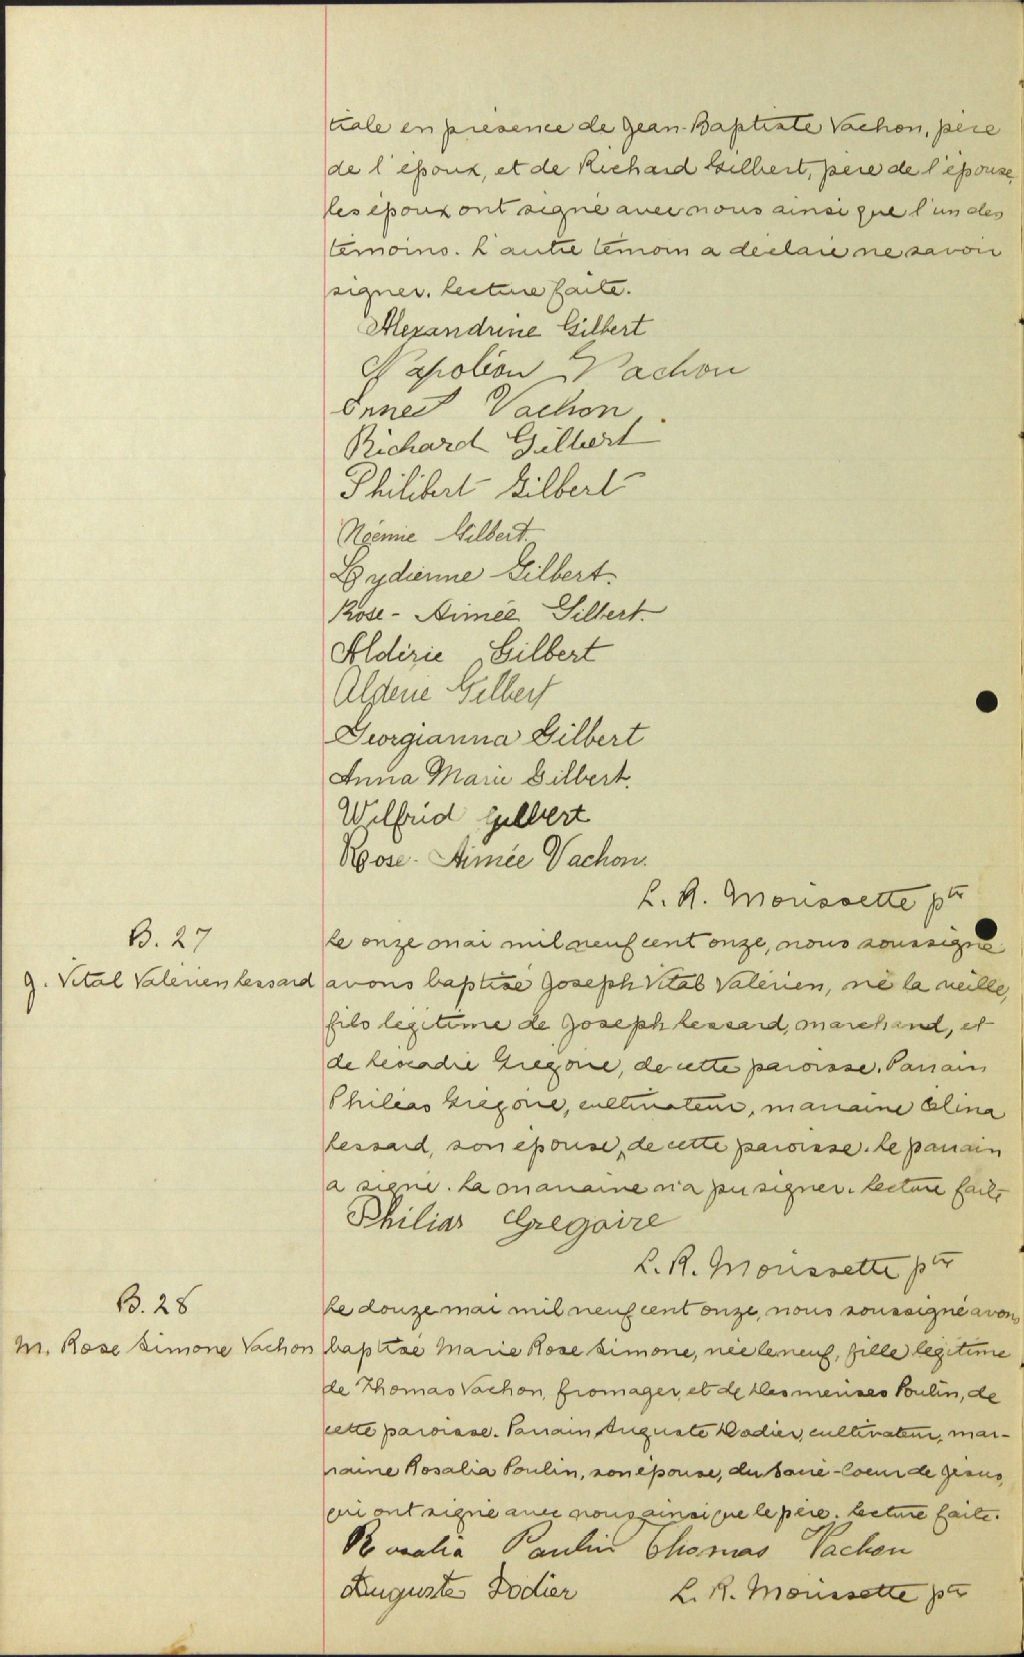 tiale en présence de Jean-Baptiste Vachon, père
de l'époux, et de Richard Gilbert, père de l'épouse,
les époux ont signé avec nous ainsi que l'un des
témoins. L'autre témoin a déclaré ne savoir
signer. Lecture faite.
Alexandrine Gilbert
Napoléon Vachon
Ernest Vachon
Richard Gilbert
Philibert Gilbert
Noémie Gilbert.
Lydienne Gilbert.
Rose-Aimée Gilbert.
Aldérie Gilbert
Alderie Gilbert
Georgianna Gilbert
Anna Marie Gilbert.
Wilfrid Gilbert
Rose-Aimée Vachon.
L. R. Morissette ptre
B. 27
J. Vital Valérien Lessard
Le onze mai mil neuf cent onze, nous soussigné
avons baptisé Joseph Vital Valérien, né la veille,
fils légitime de Joseph Lessard, marchand, et
de Léocadie Grégoire, de cette paroisse. Parrain
Philéas Grégoire, cultivateur, marraine Célina
Lessard, son épouse, de cette paroisse. Le parrain
a signé. La marraine n'a pu signer. Lecture faite
Philias Gregoire
L. R. Morissette ptre
B. 28
M. Rose Simone Vachon
Le douze mai mil neuf cent onze, nous soussigné avons
baptisé Marie Rose Simone, née le neuf, fille légitime
de Thomas Vachon, fromager, et de Desmerises Poulin, de
cette paroisse. Parrain Auguste Dodier, cultivateur, mar-
raine Rosalia Poulin, son épouse, du Sacré-Coeur de Jésus,
qui ont signé avec nous ainsi que le père. Lecture faite.
Rosalia Poulin Thomas Vachon
Auguste Dodier L. R. Morissette ptre